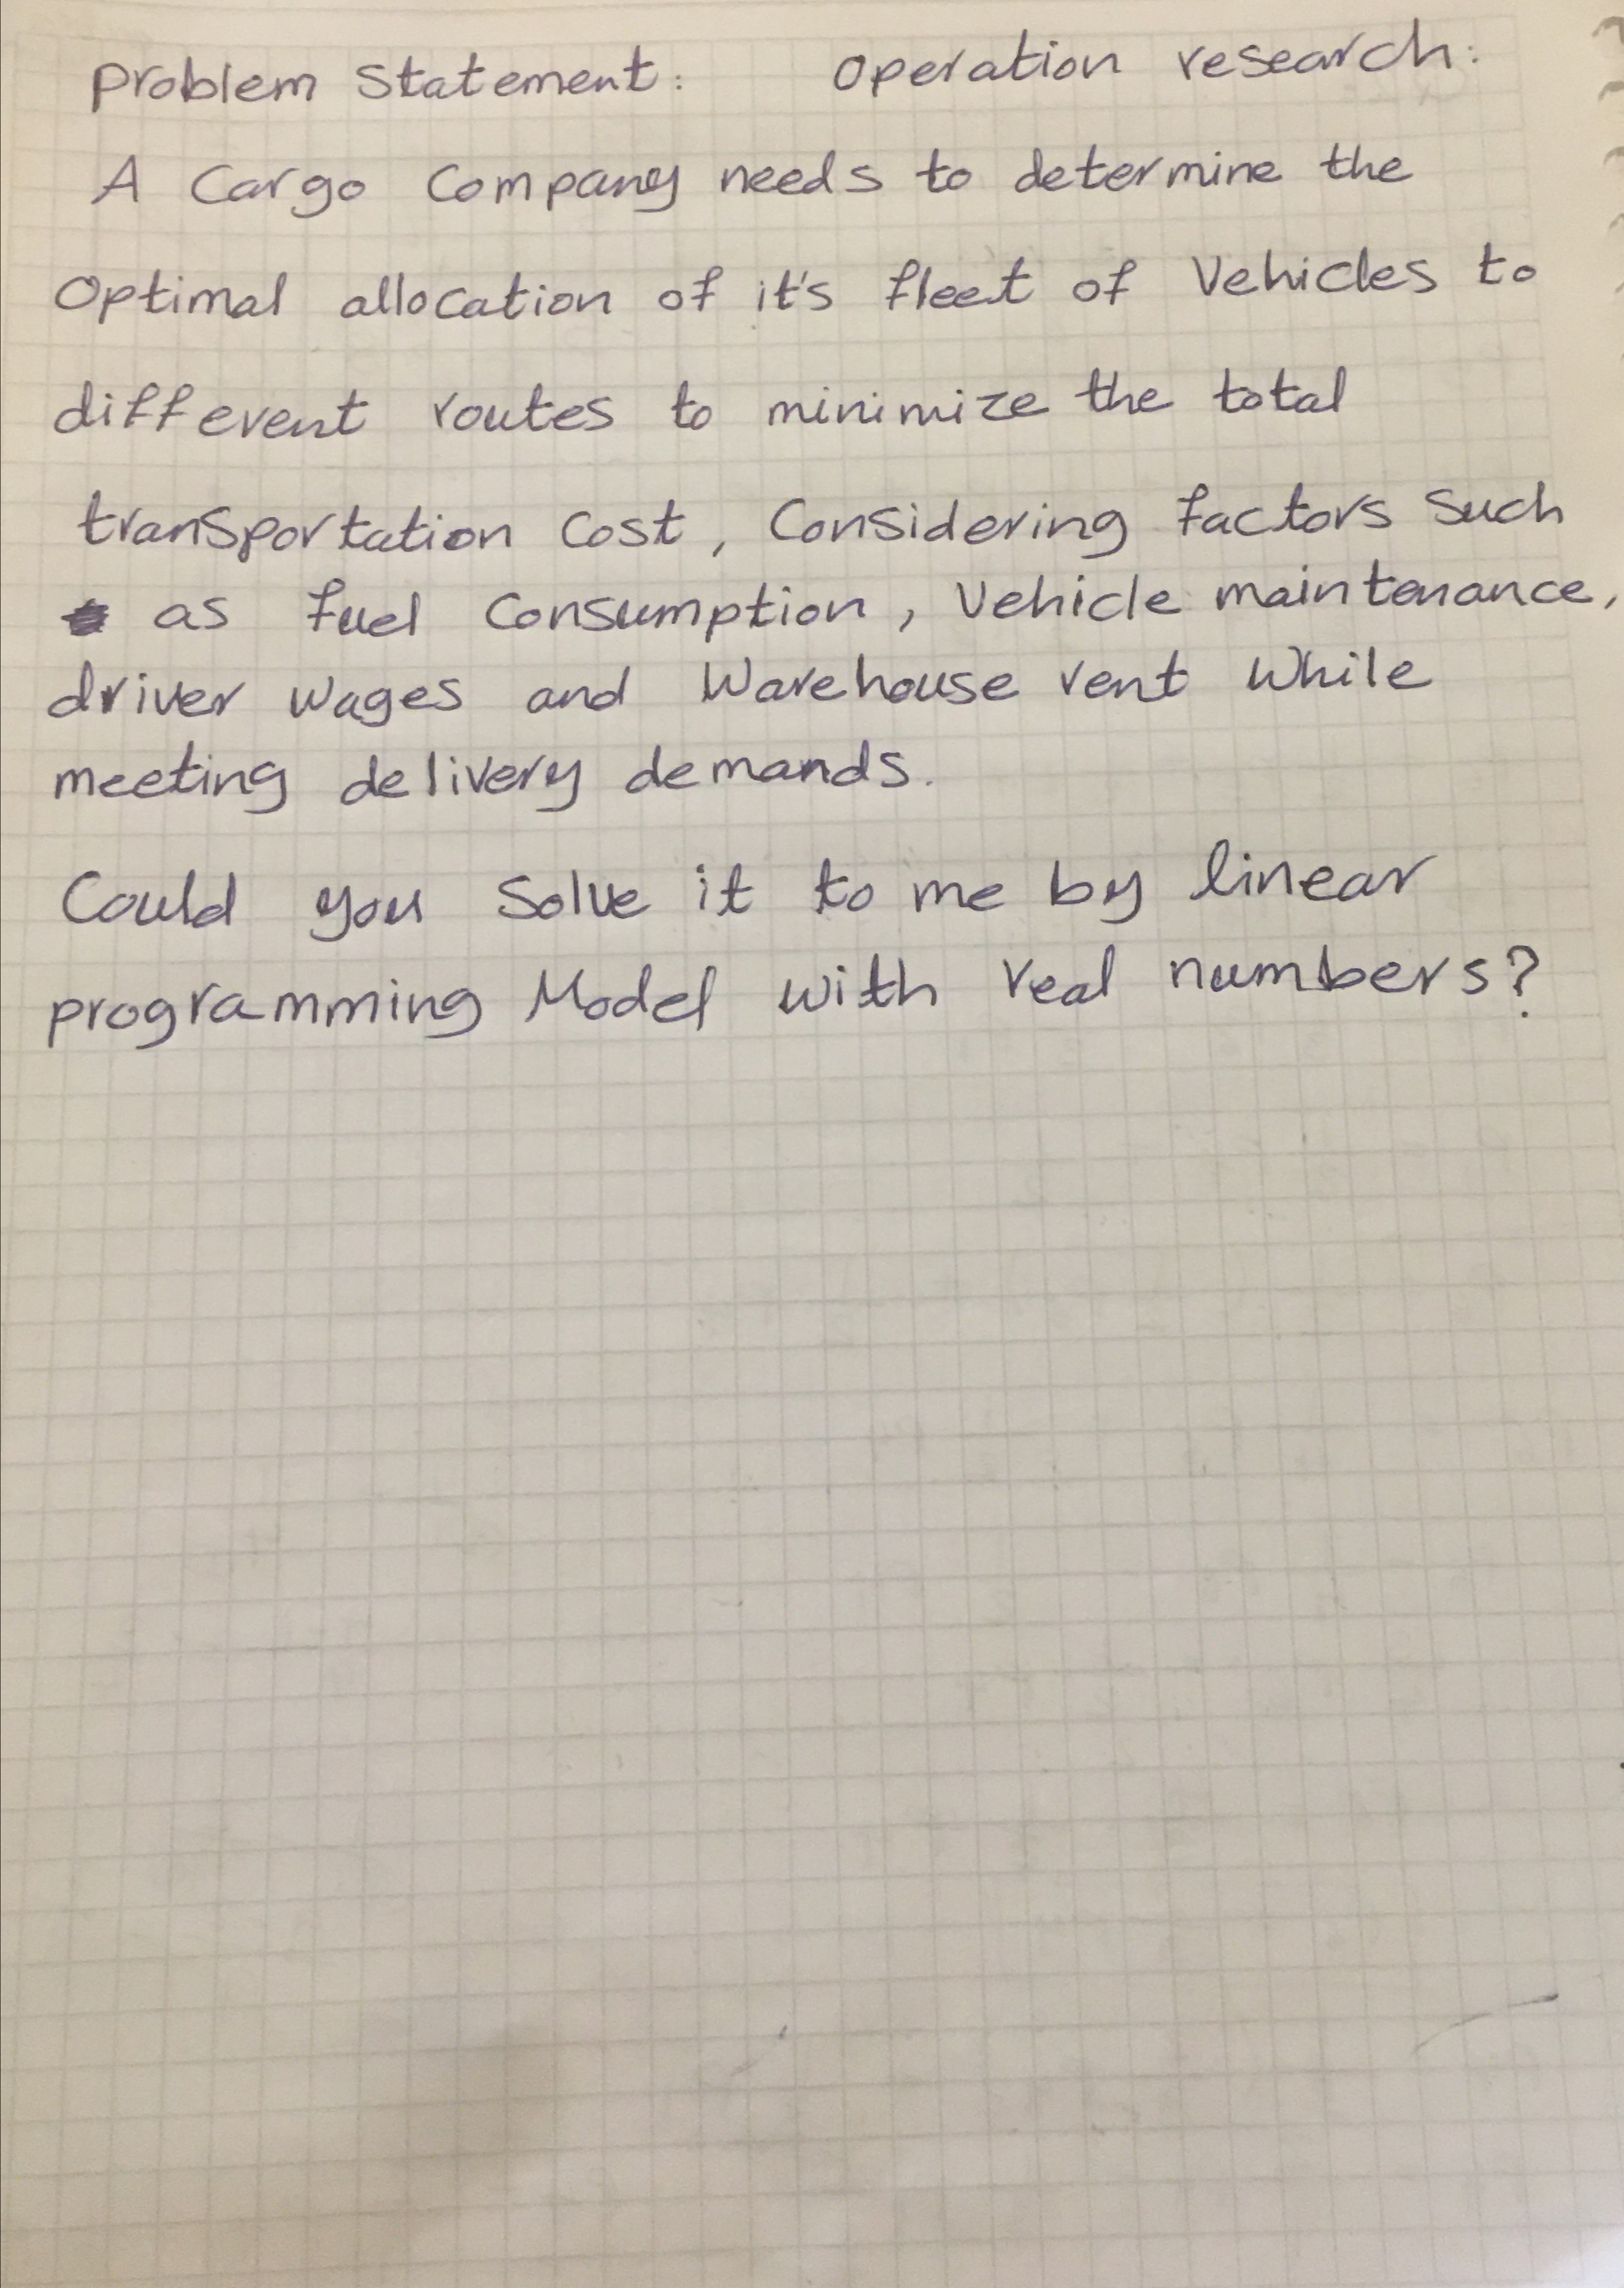 Problem Statement: Operation research:
A Cargo Company needs to determine the
Optimal allocation of it's fleet of Vehicles to
different routes to minimize the total
transportation Cost, Considering factors Such
as fuel Consumption, Vehicle maintenance,
driver wages and Warehouse rent While
meeting delivery demands.
Could you Solve it to me by linear
programming Model with real numbers?